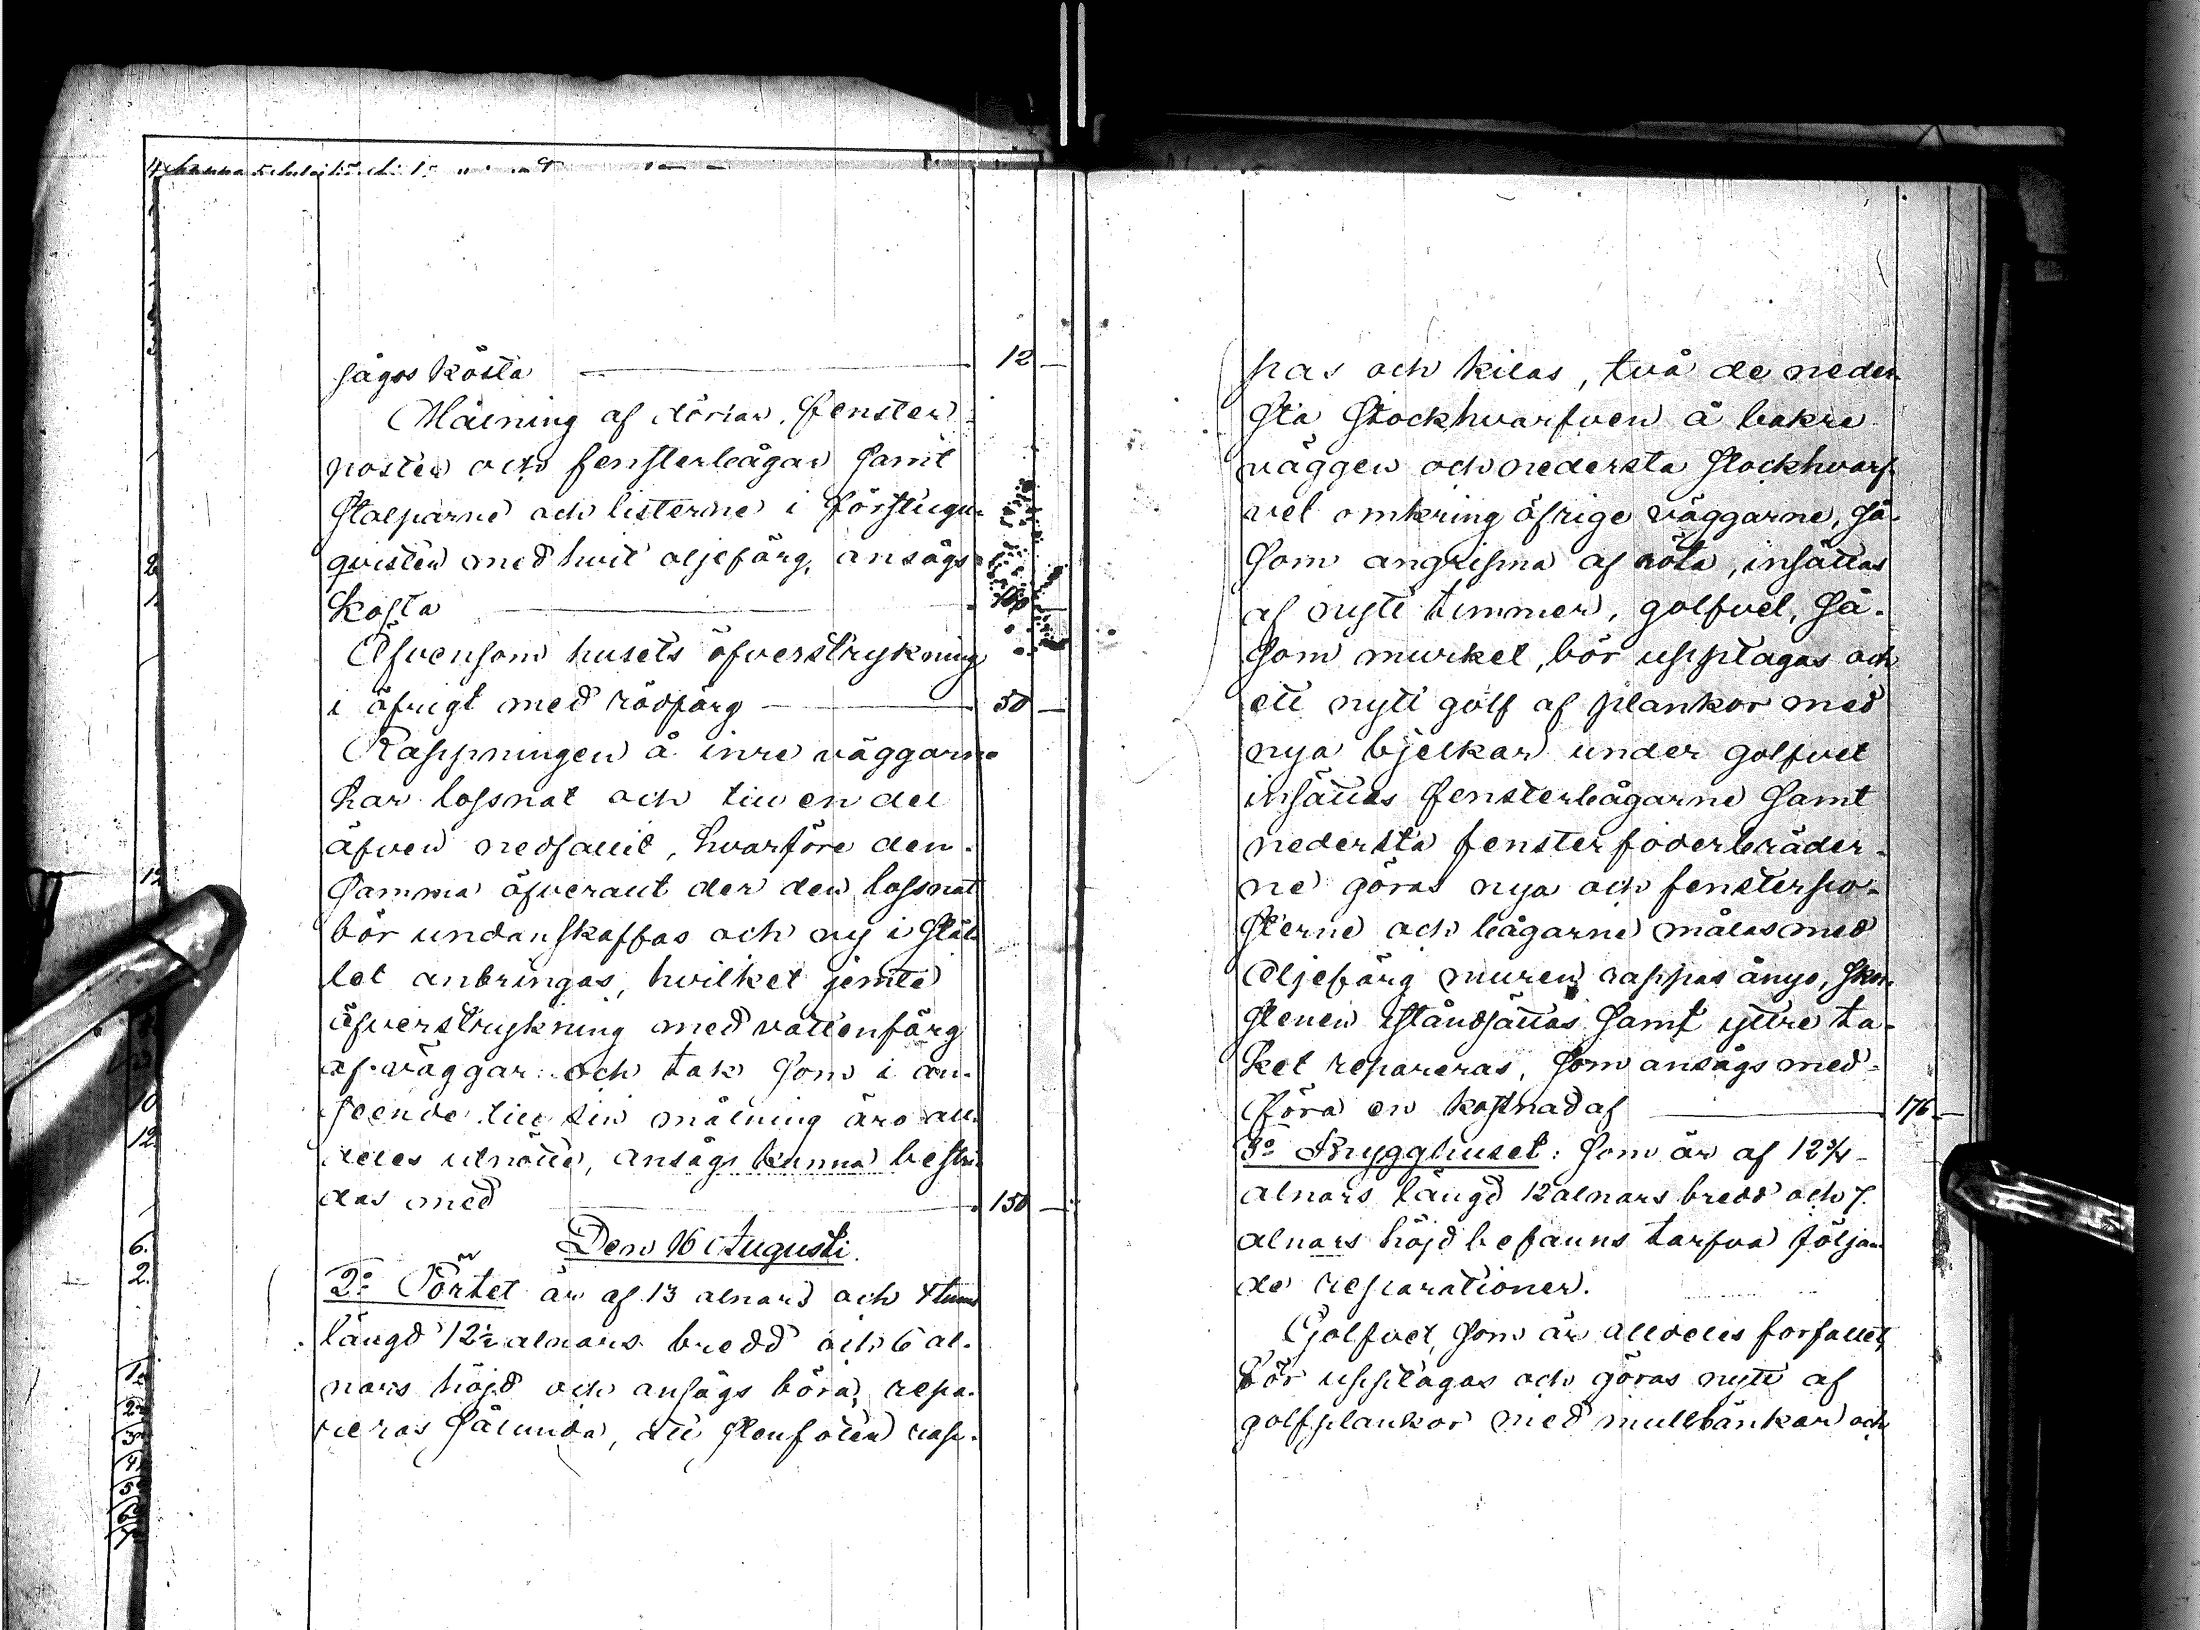 sågos kosta 12
Målning af dörrar, fenster
poster och fensterbågar samt
stolparne och listerne i förstugu-
qvisten med hvit oljefärg, ansågs
kosta 100
Äfvensom husets öfverstrykning
i öfrigt med rödfärg 50
Rappningen å inre väggarne
har lossnat och till en del
äfven nedfallit, hvarföre den-
samma öfverallt der den lossnat
bör undanskaffas och ny i stäl-
let anbringas, hvilket jemte
öfverstrykning med vattenfärg
af väggar och tak som i an-
seende till sin målning äro all-
deles utnötte, ansågs kunna bestri-
das med 150
Den 16 Augusti
2o Pörtet är af 13 alnars och 4 tums
längd 12½ alnars bredd och 6 al-
nars höjd och ansågs böra repa-
reras sålunda, att stenfoten rap-
pas och kilas, två de neder-
sta stockhvarfven å bakre
väggen och nedersta stockhvarf-
vet omkring öfrige väggarne, så-
som angripna af röta, insättas
af nytt timmer, golfvet, så-
som murket, bör upptagas och
ett nytt golf af plankor med
nya bjelkar under golfvet
insättas fensterbågarne samt
nedersta fensterfoderbräder-
ne göras nya och fensterpo-
sterne och bågarne målas med
oljefärg muren rappas ånyo, skor-
stenen iståndsättas samt yttre ta-
ket repareras, som ansågs med-
föra en kostnad af 176
3o Brygghuset: som är af 12¾
alnars längd 12 alnars bredd och 7
alnars höjd befanns tarfva följan-
de reparationer.
Golfvet, som är alldeles förfallet,
bör upptagas och göras nytt af
golfplankor med mullbänkar och